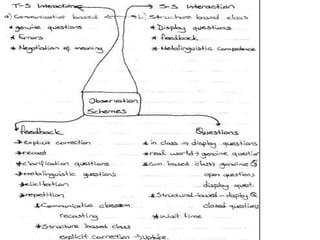 T-S Interaction
a) Communicative based
* genuine questions
* Errors
* Negotiation of meaning
S-S Interaction
b) Structure based class
* Display questions
* feedback
* Metalinguistic competence
Observation
Schemes
feedback
* explicit correction
* recast
* clarification questions
* Metalinguistic questions
* elicitation
* repetition
* Communicative classroom
recasting
* Structure based class
explicit correction → Uptake.
Questions
* in class → display questions
* real world → genuine question
* Com. based class → genuine &
open questions
display quest.
* Structural-based → display &
closed questions
* Wait time